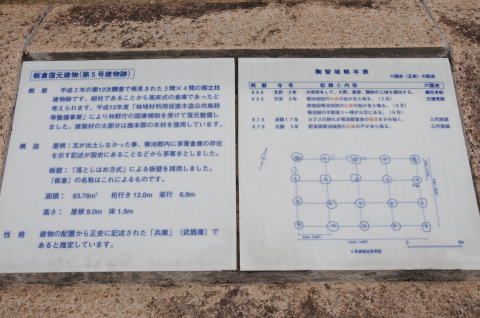 板倉復元建物(第5号建物跡)
概要 平成2年の第12次調査で発見された3間×4間の掘立柱
建物跡です。総柱であることから高床式の倉庫であったと
考えられます。平成12年度「地域材利用促進木造公共施設
等整備事業」により林野庁の国庫補助を受けて復元整備し
ました。建築材の大部分は熊本県の木材を使用しています。
構造 屋根:瓦が出土しなかった事、菊池郡内に茅葺倉庫の存在
を示す記述が国史にあることなどから茅葺きとしました。
板壁:「落としはめ方式」による板壁を採用しました。
「板倉」の名称はこれによるものです。
面積: 83.78m² 桁行き12.0m 梁行 6.9m
高さ: 屋根9.0m 床1.5m
性格 建物の配置から正史に記述された「兵庫」(武器庫)で
あると推定しています。
鞠智城略年表
六国史(正史)の記述
西暦 年号 記録と内容 六国史
698 文武 2年 大宰府をして、大野、基肄、鞠智の三城を繕治する。 続日本紀
858 天安 2年 文徳実録
875 貞観17年 三代実録
879 元慶 3年 三代実録
5号建物址実測図